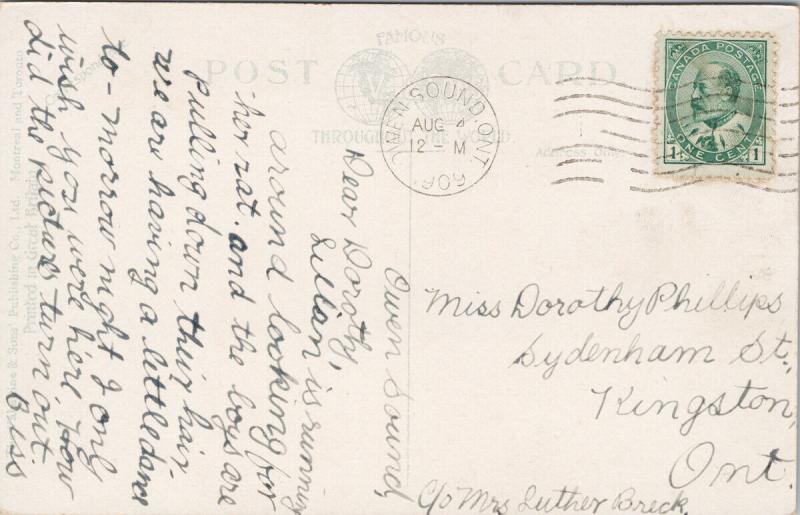 POST CARD
FAMOUS
THROUGHOUT THE WORLD
Address Only
Correspondence
& Sons' Publishing Co., Ltd. Montreal and Toronto
Printed in Great Britain
OWEN SOUND, ONT.
AUG 4
12 M
'09
CANADA POSTAGE
ONE CENT
1 1
Owen Sound,
Dear Dorothy,
Lillian is running
around looking for
her rat. and the boys are
pulling down their hair.
we are having a little dance
to-morrow night I only
wish you were here How
did the pictures turn out.
Biss
Miss Dorothy Phillips
Sydenham St.,
Kingston,
Ont.
C/o Mrs Luther Breck.